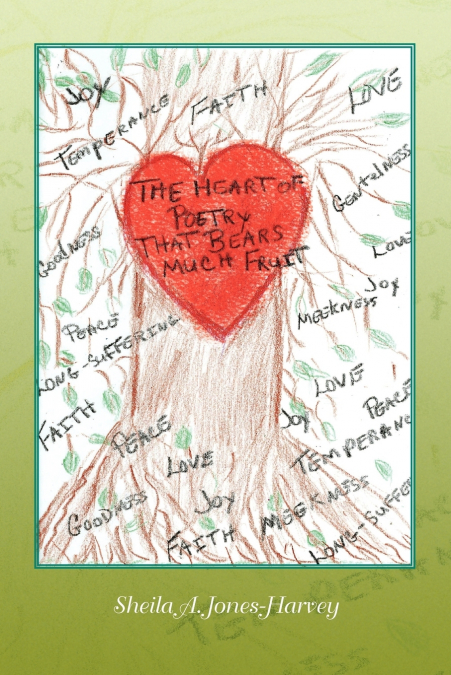 JOY
TEMPERANCE
FAITH
LOVE
GENTLENESS
THE HEART OF
POETRY
THAT BEARS
MUCH FRUIT
GOODNESS
LOVE
JOY
MEEKNESS
PEACE
LONG-SUFFERING
LOVE
PEACE
FAITH
PEACE
JOY
TEMPERANC
LOVE
GOODNESS
JOY
MEEKNESS
FAITH
LONG-SUFFER
Sheila A. Jones-Harvey